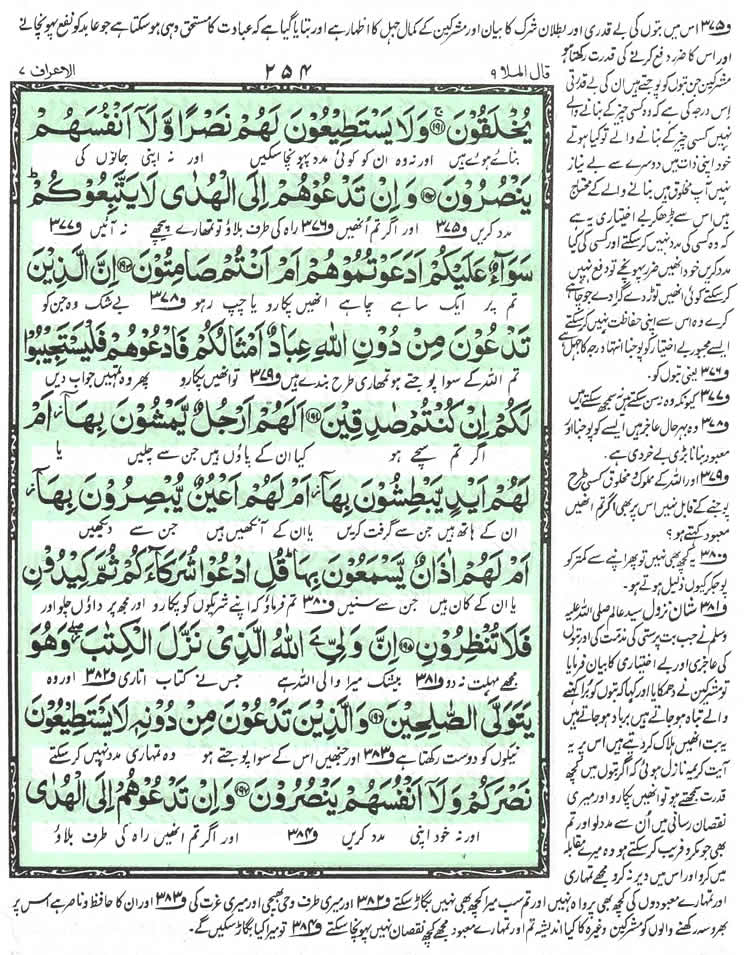 و۳۷۵ اس میں بتوں کی بے قدری اور بطلان شرک کا بیان اور مشرکین کے کمال جہل کا اظہار ہے اور بتایا گیا ہے کہ عبادت کا مستحق وہی ہو سکتا ہے جو عابد کو نفع پہونچانے
اور اس کا ضرر دفع کرنے کی قدرت رکھتا ہو
قال الملا ۹
۲۵۴
الاعراف ۷
يُخْلَقُوْنَ ﴿۱۹۱﴾ۚ وَلَا يَسْتَطِيْعُوْنَ لَهُمْ نَصْرًا وَّلَآ اَنْفُسَهُمْ
بنائے ہوئے ہیں اور نہ وہ ان کو کوئی مدد پہونچا سکیں اور نہ اپنی جانوں کی
يَنْصُرُوْنَ ﴿۱۹۲﴾ وَاِنْ تَدْعُوْهُمْ اِلَى الْهُدٰى لَا يَتَّبِعُوْكُمْ ؕ
مدد کریں و۳۷۵ اور اگر تم انھیں و۳۷۶ راہ کی طرف بلاؤ تو تمھارے پیچھے نہ آئیں و۳۷۷
سَوَآءٌ عَلَيْكُمْ اَدَعَوْتُمُوْهُمْ اَمْ اَنْتُمْ صَامِتُوْنَ ﴿۱۹۳﴾ اِنَّ الَّذِيْنَ
تم پر ایک سا ہے چاہے انھیں پکارو یا چپ رہو و۳۷۸ بے شک وہ جن کو
تَدْعُوْنَ مِنْ دُوْنِ اللّٰهِ عِبَادٌ اَمْثَالُكُمْ فَادْعُوْهُمْ فَلْيَسْتَجِيْبُوْا
تم اللہ کے سوا پوجتے ہو تمھاری طرح بندے ہیں و۳۷۹ تو انھیں پکارو پھر وہ تمھیں جواب دیں
لَكُمْ اِنْ كُنْتُمْ صٰدِقِيْنَ ﴿۱۹۴﴾ اَلَهُمْ اَرْجُلٌ يَّمْشُوْنَ بِهَآ ز اَمْ
اگر تم سچے ہو کیا ان کے پاؤں ہیں جن سے چلیں یا
لَهُمْ اَيْدٍ يَّبْطِشُوْنَ بِهَآ ز اَمْ لَهُمْ اَعْيُنٌ يُّبْصِرُوْنَ بِهَآ ز
ان کے ہاتھ ہیں جن سے گرفت کریں یا ان کے آنکھیں ہیں جن سے دیکھیں
اَمْ لَهُمْ اٰذَانٌ يَّسْمَعُوْنَ بِهَا ؕ قُلِ ادْعُوْا شُرَكَآءَكُمْ ثُمَّ كِيْدُوْنِ
یا ان کے کان ہیں جن سے سنیں و۳۸۰ تم فرماؤ کہ اپنے شریکوں کو پکارو اور مجھ پر داؤں چلو اور
فَلَا تُنْظِرُوْنِ ﴿۱۹۵﴾ اِنَّ وَلِيِّ َۧ اللّٰهُ الَّذِيْ نَزَّلَ الْكِتٰبَ ۖ وَهُوَ
مجھے مہلت نہ دو و۳۸۱ بیشک میرا والی اللہ ہے جس نے کتاب اتاری و۳۸۲ اور وہ
يَتَوَلَّى الصّٰلِحِيْنَ ﴿۱۹۶﴾ وَالَّذِيْنَ تَدْعُوْنَ مِنْ دُوْنِهٖ لَا يَسْتَطِيْعُوْنَ
نیکوں کو دوست رکھتا ہے و۳۸۳ اور جنھیں اس کے سوا پوجتے ہو وہ تمہاری مدد نہیں کر سکتے
نَصْرَكُمْ وَلَآ اَنْفُسَهُمْ يَنْصُرُوْنَ ﴿۱۹۷﴾ وَاِنْ تَدْعُوْهُمْ اِلَى الْهُدٰى
اور نہ خود اپنی مدد کریں و۳۸۴ اور اگر تم انھیں راہ کی طرف بلاؤ
مشرکین جن بتوں کو پوجتے ہیں ان کی بے قدرتی
اس درجہ کی ہے کہ وہ کسی چیز کے بنانے والے
نہیں کسی چیز کے بنانے والے تو کیا ہوتے
خود اپنی ذات میں دوسرے سے بے نیاز
نہیں آپ مخلوق ہیں بنانے والے کے محتاج
ہیں اس سے بڑھ کر بے اختیاری یہ ہے
کہ وہ کسی کی مدد نہیں کر سکتے اور کسی کی کیا
مدد کریں خود انھیں ضرر پہونچے تو دفع نہیں
کر سکتے کوئی انھیں توڑ دے گرا دے جو چاہے
کرے وہ اس سے اپنی حفاظت نہیں کر سکتے
ایسے مجبور بے اختیار کو پوجنا انتہا درجہ کا جہل ہے
و۳۷۶ یعنی بتوں کو۔
و۳۷۷ کیونکہ وہ نہ سن سکتے ہیں نہ سمجھ سکتے ہیں
و۳۷۸ وہ بہرحال عاجز ہیں ایسے کو پوجنا اور
معبود بنانا بڑی بے خردی ہے۔
و۳۷۹ اور اللہ کے مملوک و مخلوق کسی طرح
پوجنے کے قابل نہیں اس پر بھی اگر تم انھیں
معبود کہتے ہو؟
و۳۸۰ یہ کچھ بھی نہیں تو پھر اپنے سے کمتر کو
پوج کر کیوں ذلیل ہوتے ہو۔
و۳۸۱ شان نزول سید عالم صلی اللہ علیہ
وسلم نے جب بت پرستی کی مذمت کی اور بتوں
کی عاجزی اور بے اختیاری کا بیان فرمایا
تو مشرکین نے دھمکایا اور کہا کہ بتوں کو برا کہنے
والے تباہ ہو جاتے ہیں برباد ہو جاتے ہیں
یہ بت انھیں ہلاک کر دیتے ہیں اس پر یہ
آیت کریمہ نازل ہوئی کہ اگر بتوں میں کچھ
قدرت سمجھتے ہو تو انھیں پکارو اور میری
نقصان رسانی میں اُن سے مدد لو اور تم
بھی جو مکر و فریب کر سکتے ہو وہ میرے مقابلہ
میں کرو اور اس میں دیر نہ کرو مجھے تمہاری
اور تمہارے معبودوں کی کچھ بھی پرواہ نہیں اور تم سب میرا کچھ بھی نہیں بگاڑ سکتے و۳۸۲ اور میری طرف وحی بھیجی اور میری عزت کی و۳۸۳ اور ان کا حافظ و ناصر ہے اس پر
بھروسہ رکھنے والوں کو مشرکین وغیرہ کا کیا اندیشہ تم اور تمہارے معبود مجھے کچھ نقصان نہیں پہونچا سکتے و۳۸۴ تو میرا کیا بگاڑ سکیں گے۔